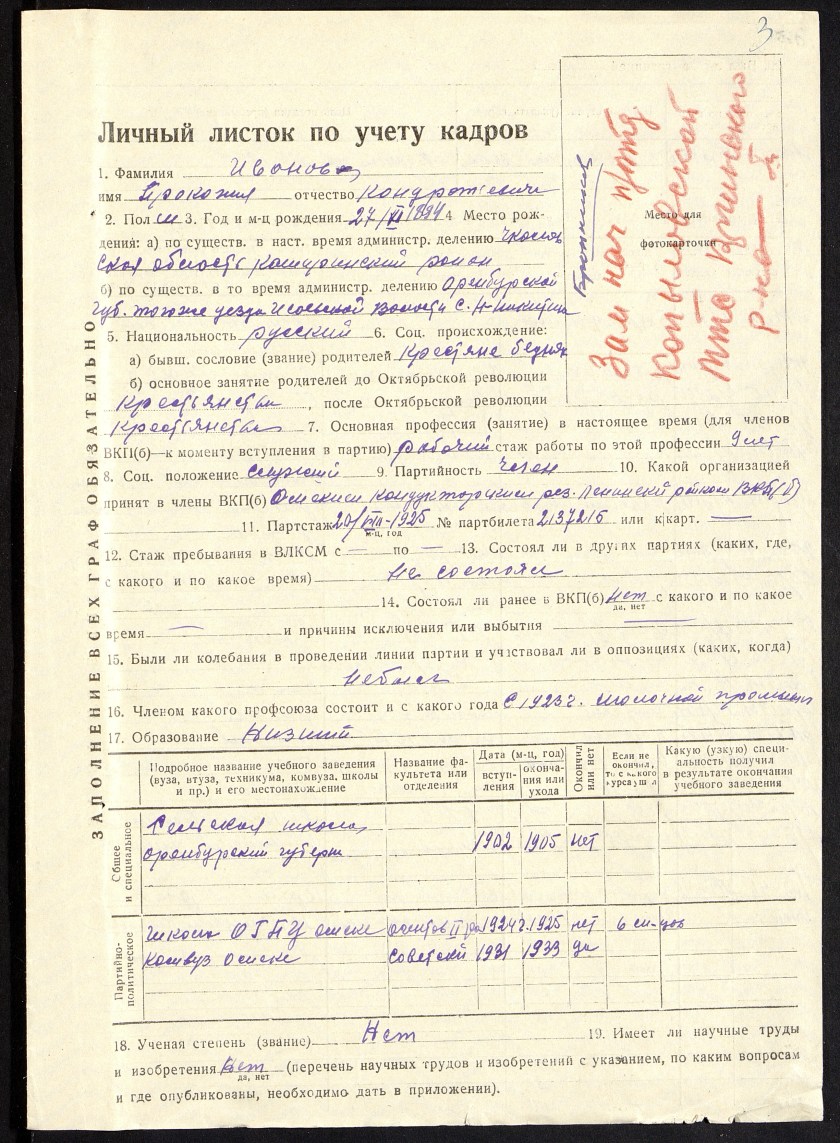 3
Личный листок по учету кадров
1. Фамилия Иванов
имя Прокопия отчество Кондратьевич
2. Пол м 3. Год и м-ц рождения 27/XI 1894 4 Место рож-
дения: а) по существ. в наст. время администр. делению Чкалов
ская область Каширинский район
б) по существ. в то время администр. делению Оренбурской
губ. тогоже уезда волости С. Н-Никитина
5. Национальность русский 6. Соц. происхождение:
а) бывш. сословие (звание) родителей Крестяне бедняк
б) основное занятие родителей до Октябрьской революции
Крестьянства, после Октябрьской революции
Крестьянства 7. Основная профессия (занятие) в настоящее время (для членов
ВКП(б)—к моменту вступления в партию) рабочий стаж работы по этой профессии 9 лет
8. Соц. положение служащий 9. Партийность член 10. Какой организацией
принят в члены ВКП(б) Омским кондукторским рез. Ленинский райком ВКП(б)
11. Партстаж 20/VIII-1925 № партбилета 2137215 или к|карт. —
м-ц, год
12. Стаж пребывания в ВЛКСМ с — по — 13. Состоял ли в других партиях (каких, где,
с какого и по какое время) Не состоял
14. Состоял ли ранее в ВКП(б) нет с какого и по какое
да, нет
время — и причины исключения или выбытия —
15. Были ли колебания в проведении линии партии и участвовал ли в оппозициях (каких, когда)
Небыл
16. Членом какого профсоюза состоит и с какого года С 1923 г. молочной промыш
17. Образование Низший
Подробное название учебного заведения (вуза, втуза, техникума, комвуза, школы и пр.) и его местонахождение
Название факультета или отделения
Дата (м-ц, год)
вступ-
ления
оконча-
ния или
ухода
Окончил или нет
Если не окончил, то с какого курса ушел
Какую (узкую) специ-
альность получил
в результате окончания
учебного заведения
Общее и специальное
Сельская школа
оренбурский губерн 1902 1905 нет
Партийно-политическое
школа ОГПУ омске 1924 г. 1925 нет 6
Комвуз омске советский 1931 1933 да
18. Ученая степень (звание) Нет 19. Имеет ли научные труды
и изобретения Нет (перечень научных трудов и изобретений с указанием, по каким вопросам
да, нет
и где опубликованы, необходимо дать в приложении).
ЗАПОЛНЕНИЕ ВСЕХ ГРАФ ОБЯЗАТЕЛЬНО
Место для
фотокарточки
Зам нач
Копыловской
р-на